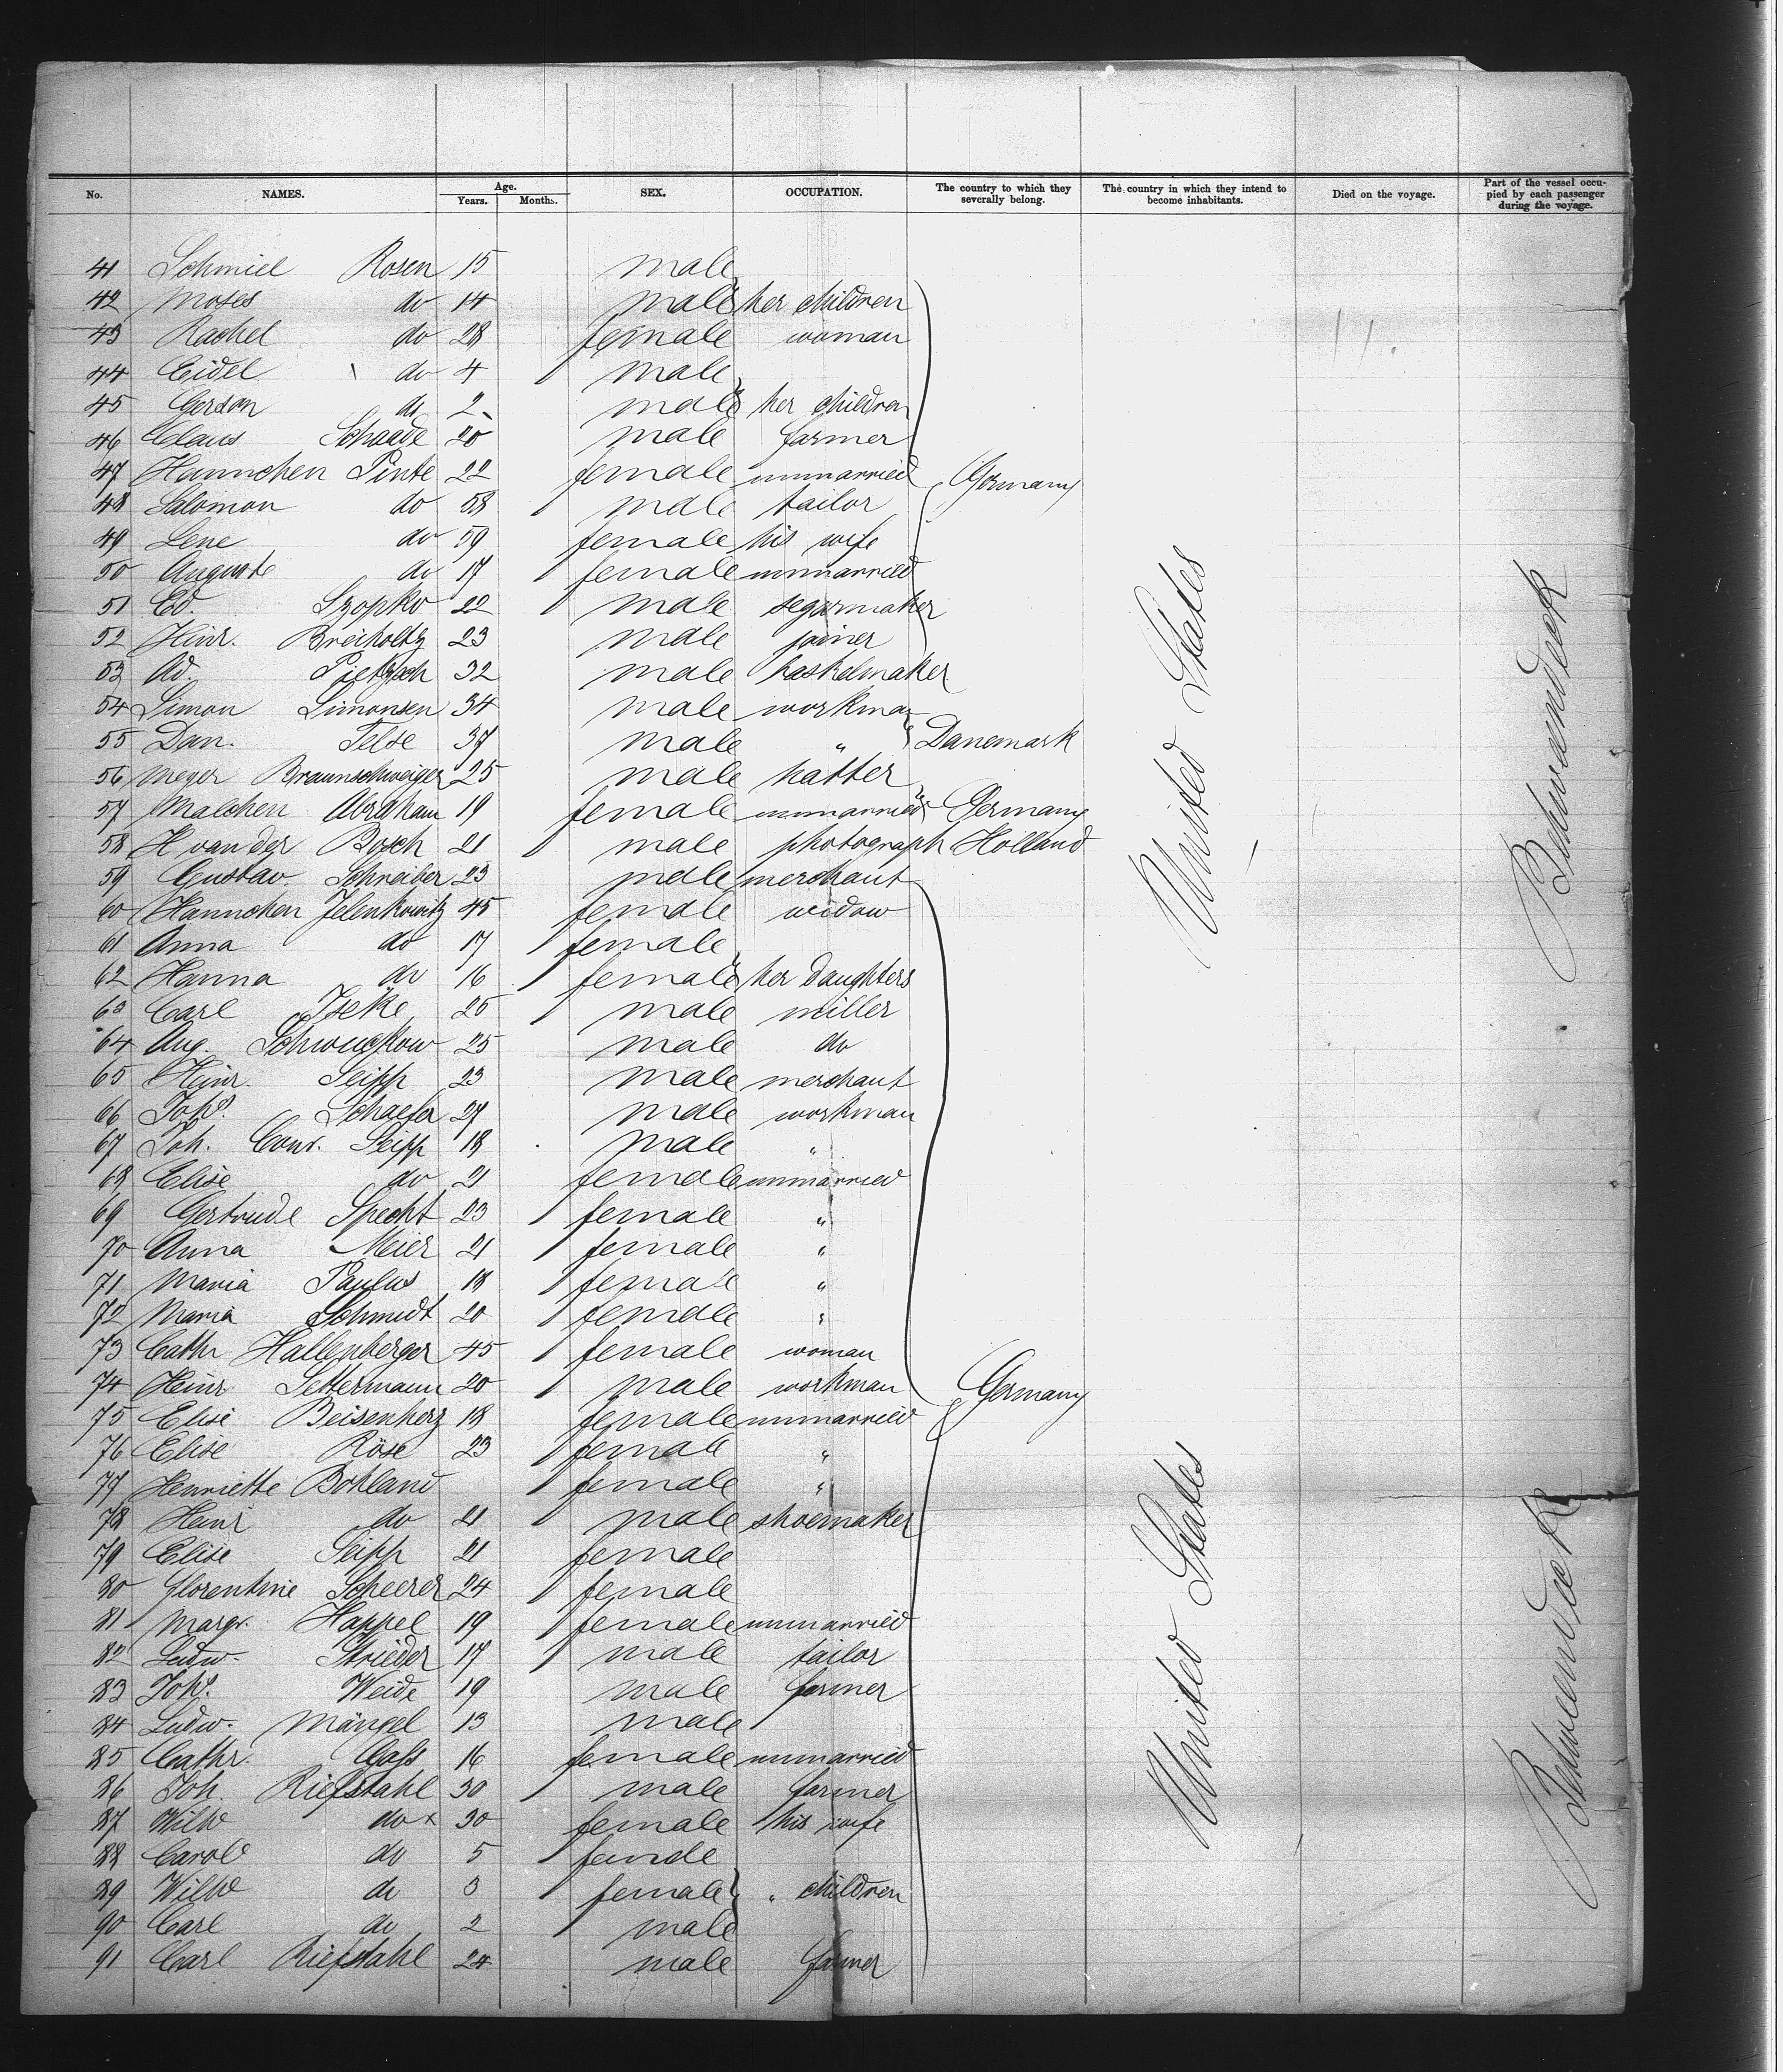 No. NAMES. Age. Years. Months. SEX. OCCUPATION. The country to which they severally belong. The country in which they intend to become inhabitants. Died on the voyage. Part of the vessel occupied by each passenger during the voyage.
41 Schmiel Rosen 15 male
42 Moses do 14 male her children
43 Rachel do 28 female woman
44 Eidel do 4 male
45 Gerson do 2 male her children
46 Claus Schaade 20 male farmer
47 Hannchen Pinte 22 female unmarried Germany
48 Salomon do 58 male tailor
49 Lene do 59 female his wife
50 Auguste do 17 female unmarried
51 Ed. Szopko 22 male segarmaker
52 Heinr. Breiholtz 23 male joiner
53 Ad. Pietzsch 32 male basketmaker
54 Simon Simonsen 34 male workman
55 Dan. Telse 37 male " Danemark
56 Meyer Braunschweiger 25 male hatter
57 Malchen Abraham 19 female unmarried Germany
58 H van der Bosch 21 male photograph Holland
59 Gustav Schreiber 23 male merchant
60 Hannchen Jelenkowitz 45 female widow
61 Anna do 17 female
62 Hanna do 16 female her daughters
63 Carl Iseke 25 male miller
64 Aug. 25 male do
65 Heinr. Seipp 23 male merchant
66 Johs. Schaefer 27 male workman
67 Joh. Conr. Seipp 18 male "
68 Elise do 21 female unmarried
69 Gertrude Specht 23 female "
70 Anna Meier 21 female "
71 Maria Paulus 18 female "
72 Maria Schmidt 20 female "
73 Cathr Hallenberger 45 female woman
74 Heinr. Settermann 20 male workman Germany
75 Elise Beisenherz 18 female unmarried
76 Elise Röse 23 female "
77 Henriette Bohland female "
78 Heinr do 21 male shoemaker
79 Elise Seipp 21 female
80 Florentine Scheerer 24 female
81 Margr. Happel 19 female unmarried
82 Ludw. Strieder 17 male tailor
83 Johs. Weide 19 male farmer
84 Ludw. Mängel 13 male
85 Cathr. Gass 16 female unmarried
86 Joh. Riefstahl 30 male farmer
87 Wilh do x 30 female his wife
88 Carol do 5 female
89 Wilh do 3 female " children
90 Carl do 2 male
91 Carl Riefstahl 24 male farmer
United States
United States
Betweendeck
Betweendeck